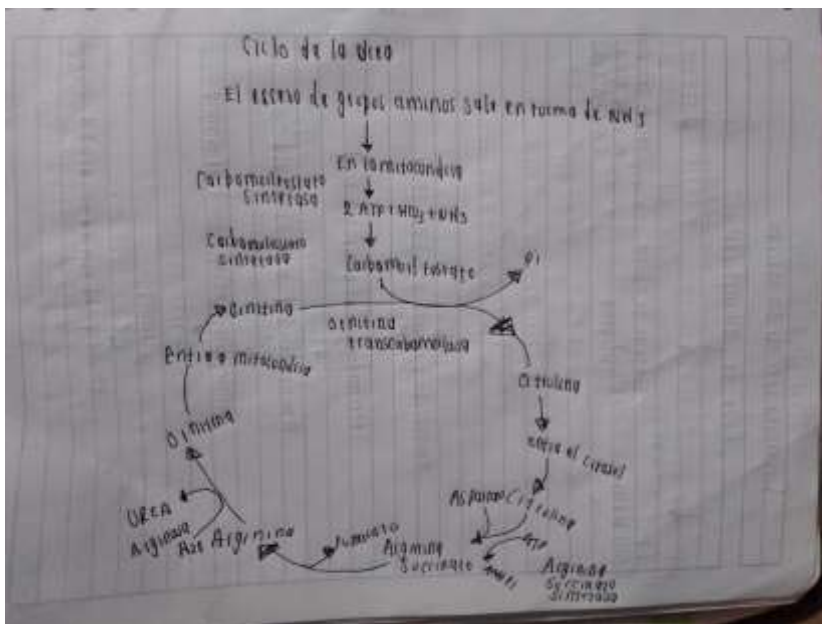 Ciclo de la urea
El exceso de grupos aminos sale en forma de NH3
En la mitocondria
Carbamoilfosfato
sintetasa
2 ATP + HCO3 + NH3
sintetasa
Carbamoil fosfato
Pi
Ornitina
Ornitina
transcabamoilasa
Entra a mitocondria
Citrulina
Ornitina
entra al citosol
Aspartato
Citrulina
UREA
Arginasa
H2O
Arginina
Fumarato
Arginino
Succinato
ATP
Arginino
Succinato
Sintetasa